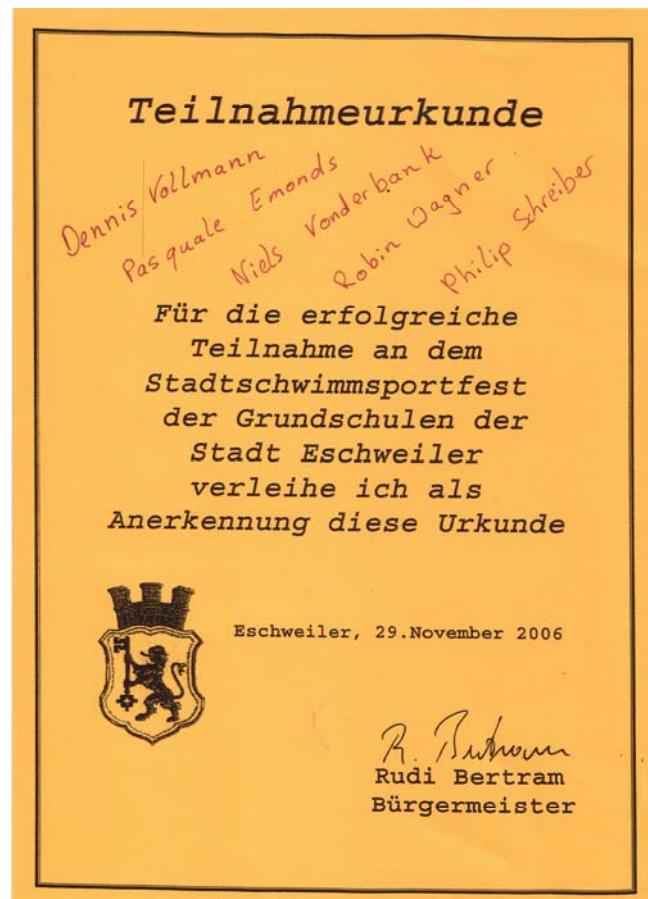 Teilnahmeurkunde
Dennis Vollmann
Pasquale Emonds
Niels Vonderbank
Robin Wagner
Philip Schreiber
Für die erfolgreiche
Teilnahme an dem
Stadtschwimmsportfest
der Grundschulen der
Stadt Eschweiler
verleihe ich als
Anerkennung diese Urkunde
Eschweiler, 29.November 2006
R. Bertram
Rudi Bertram
Bürgermeister